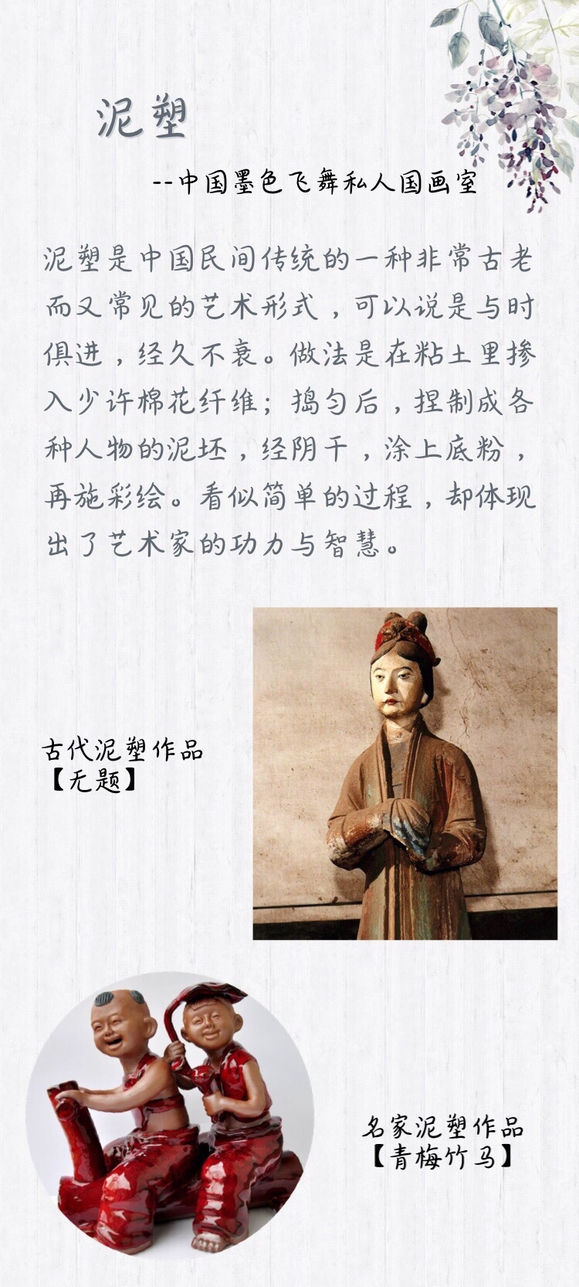 泥塑
--中国墨色飞舞私人国画室
泥塑是中国民间传统的一种非常古老
而又常见的艺术形式，可以说是与时
俱进，经久不衰。做法是在粘土里掺
入少许棉花纤维；捣匀后，捏制成各
种人物的泥坯，经阴干，涂上底粉，
再施彩绘。看似简单的过程，却体现
出了艺术家的功力与智慧。
古代泥塑作品
【无题】
名家泥塑作品
【青梅竹马】